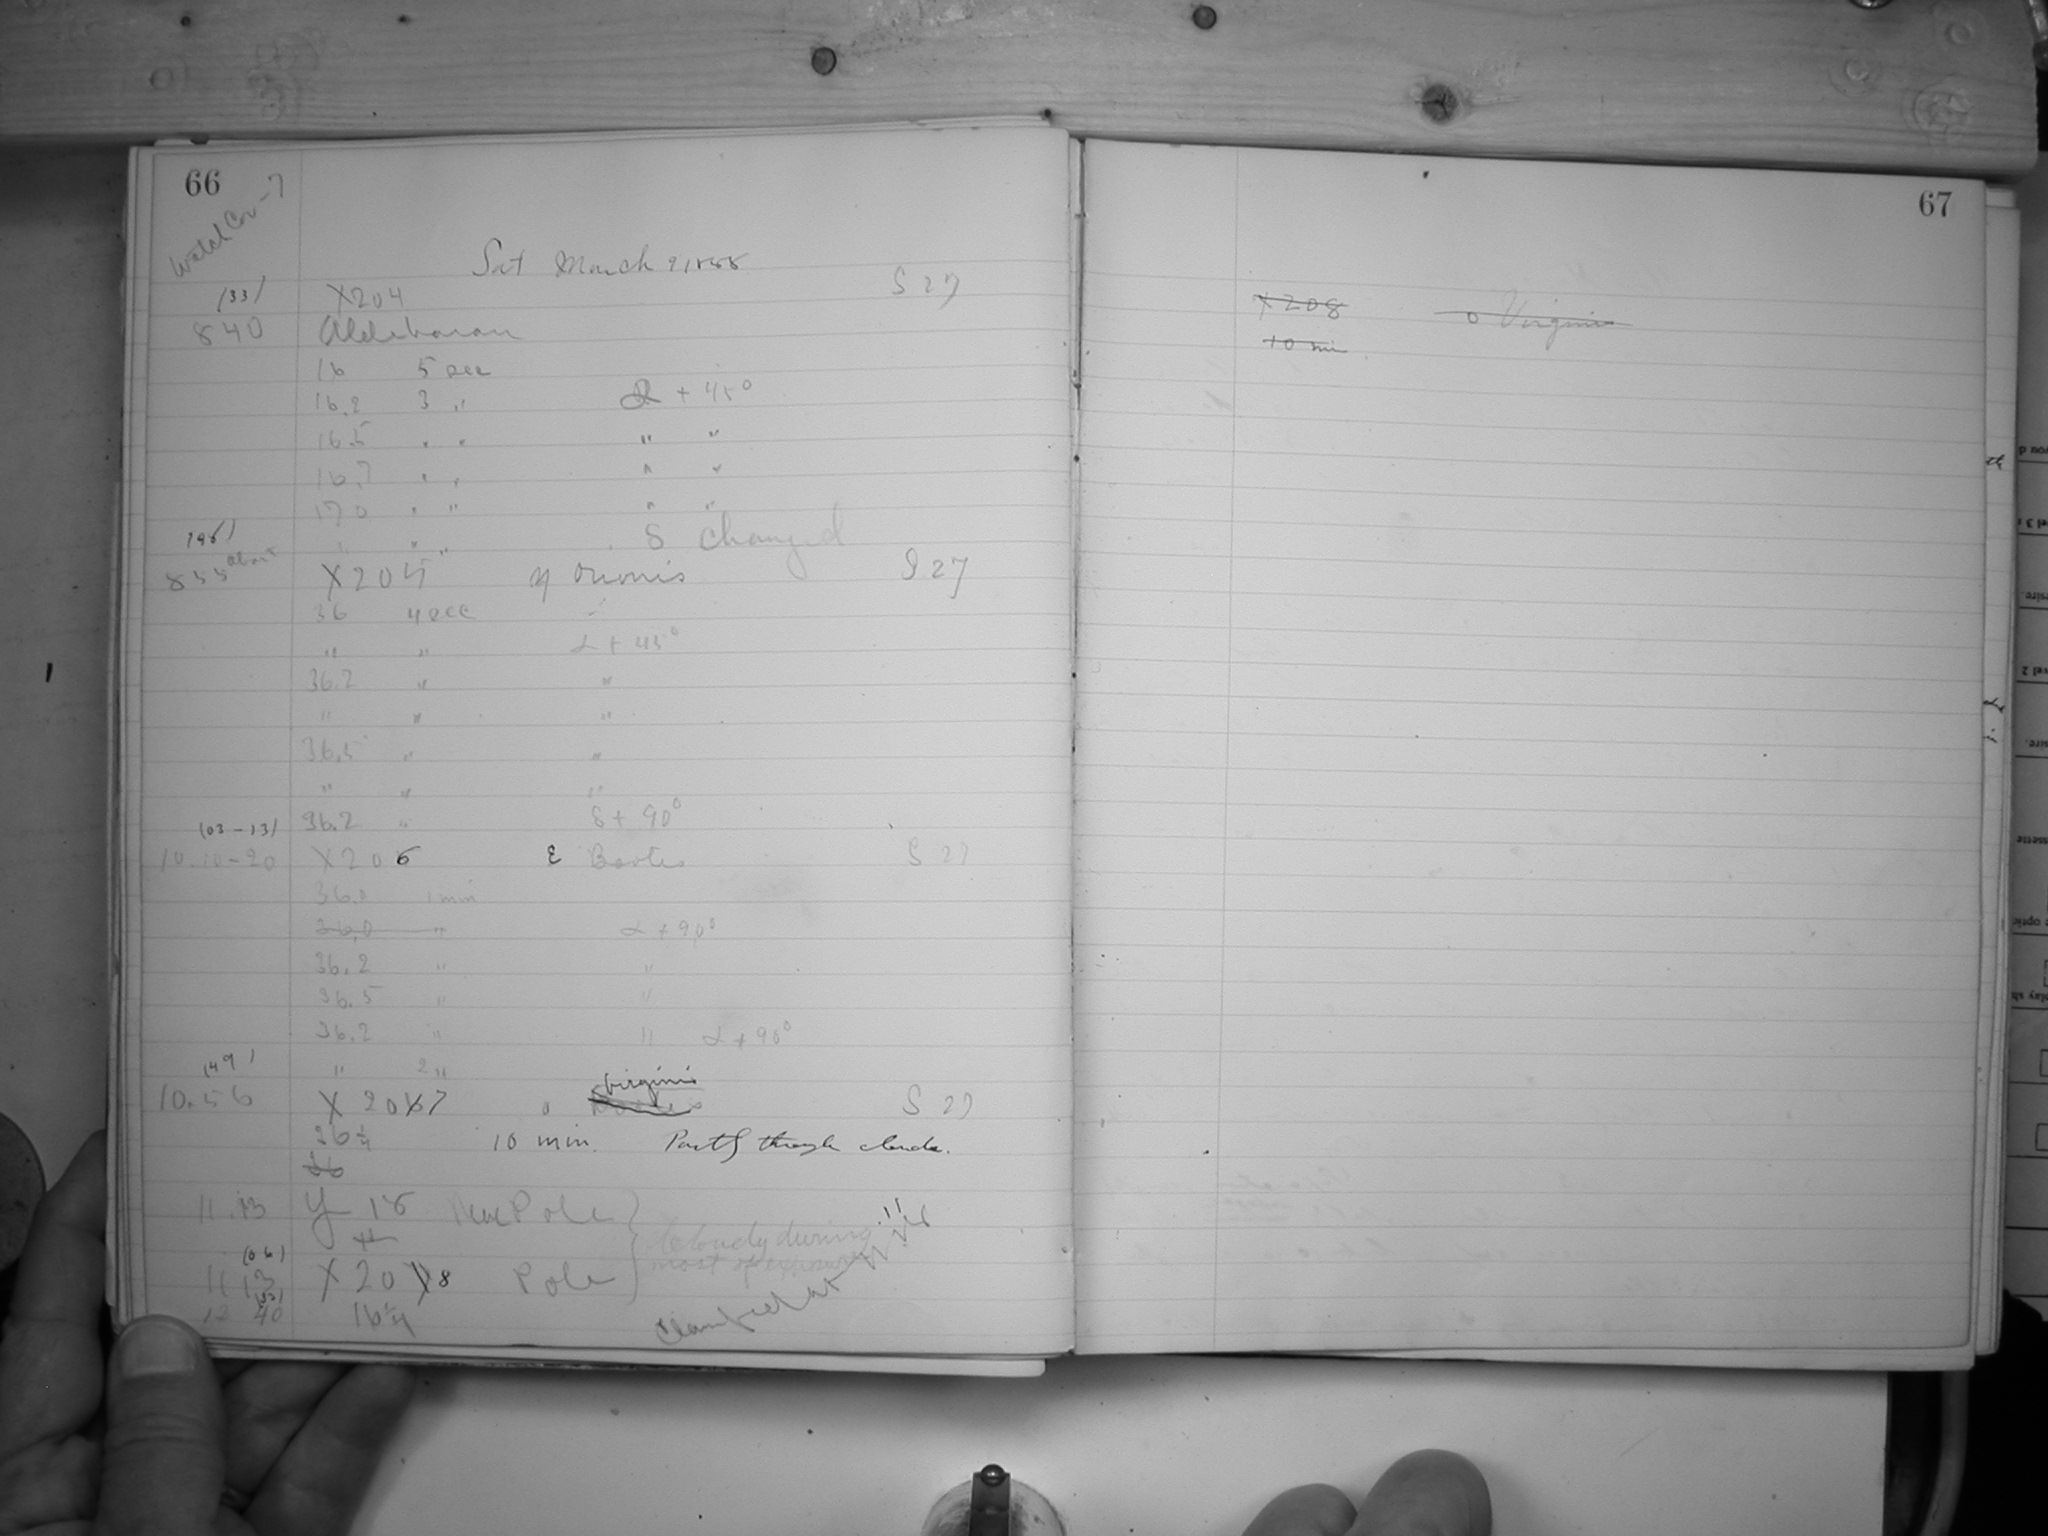 66
Watch Cor -7
Sat March 9 1888
(33) X204 S 27
8 40 Aldebaran
16 5 sec
16.2 3 " α + 45°
16.5 " " " "
16.7 " " " "
17 0 " " " "
" " " δ changed
(48) 
8 55 about X205 η Orionis S 27
36 4 sec
" " α + 45°
36.2 " "
" " "
36.5 " "
" " "
36.2 " δ + 90°
(03-13)
10.10-20 X206 ε Bootis S 27
36.0 1 min
36.0 " α + 90°
36.2 " "
36.5 " "
36.2 " " α + 90°
(49) " 2 "
Virginis
10.56 X 207 o Bootis S 27
26 1/4 10 min. Partly through clouds.
36
11.13 Y 18 Near Pole
Cloudy during
(06) most of exposure
11 13 X 208 Pole
12 40 16 1/4
67
X 208 o Virginis
10 min